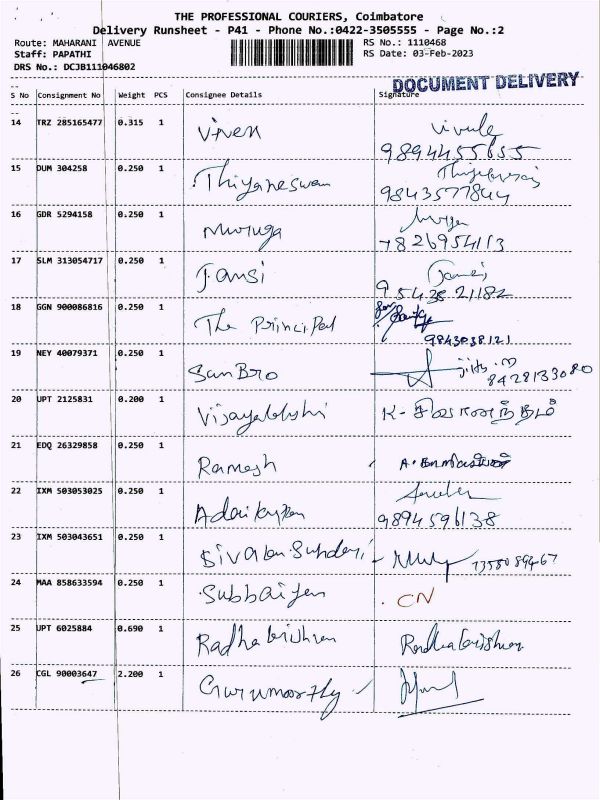 THE PROFESSIONAL COURIERS, Coimbatore
Delivery Runsheet - P41 - Phone No.:0422-3505555 - Page No.:2
Route: MAHARANI AVENUE RS No.: 1110468
Staff: PAPATHI RS Date: 03-Feb-2023
DRS No.: DCJB111046802
DOCUMENT DELIVERY
S No Consignment No Weight PCS Consignee Details Signature
14 TRZ 285165477 0.315 1 Viven
9894455655
15 DUM 304258 0.250 1 Thiyaneswan
9843577844
16 GDR 5294158 0.250 1 Muruga
7826954113
17 SLM 313054717 0.250 1 Jansi
9543821182
18 GGN 900086816 0.250 1 The Principal
9843038121
19 NEY 40079371 0.250 1 SanBro
8428133080
20 UPT 2125831 0.200 1 K-
21 EDQ 26329858 0.250 1 Ramesh
22 IXM 503053025 0.250 1
9894596138
23 IXM 503043651 0.250 1
24 MAA 858633594 0.250 1 Subbaiyen CN
25 UPT 6025884 0.690 1 Radhakrishnan Radhakrishnan
26 CGL 90003647 2.200 1 Gurumoorthy